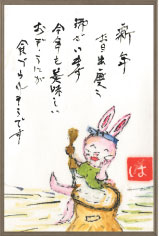 新年
お目出度う
御ざいます
今年も美味しい
おぞうにが
食べられそうです
は